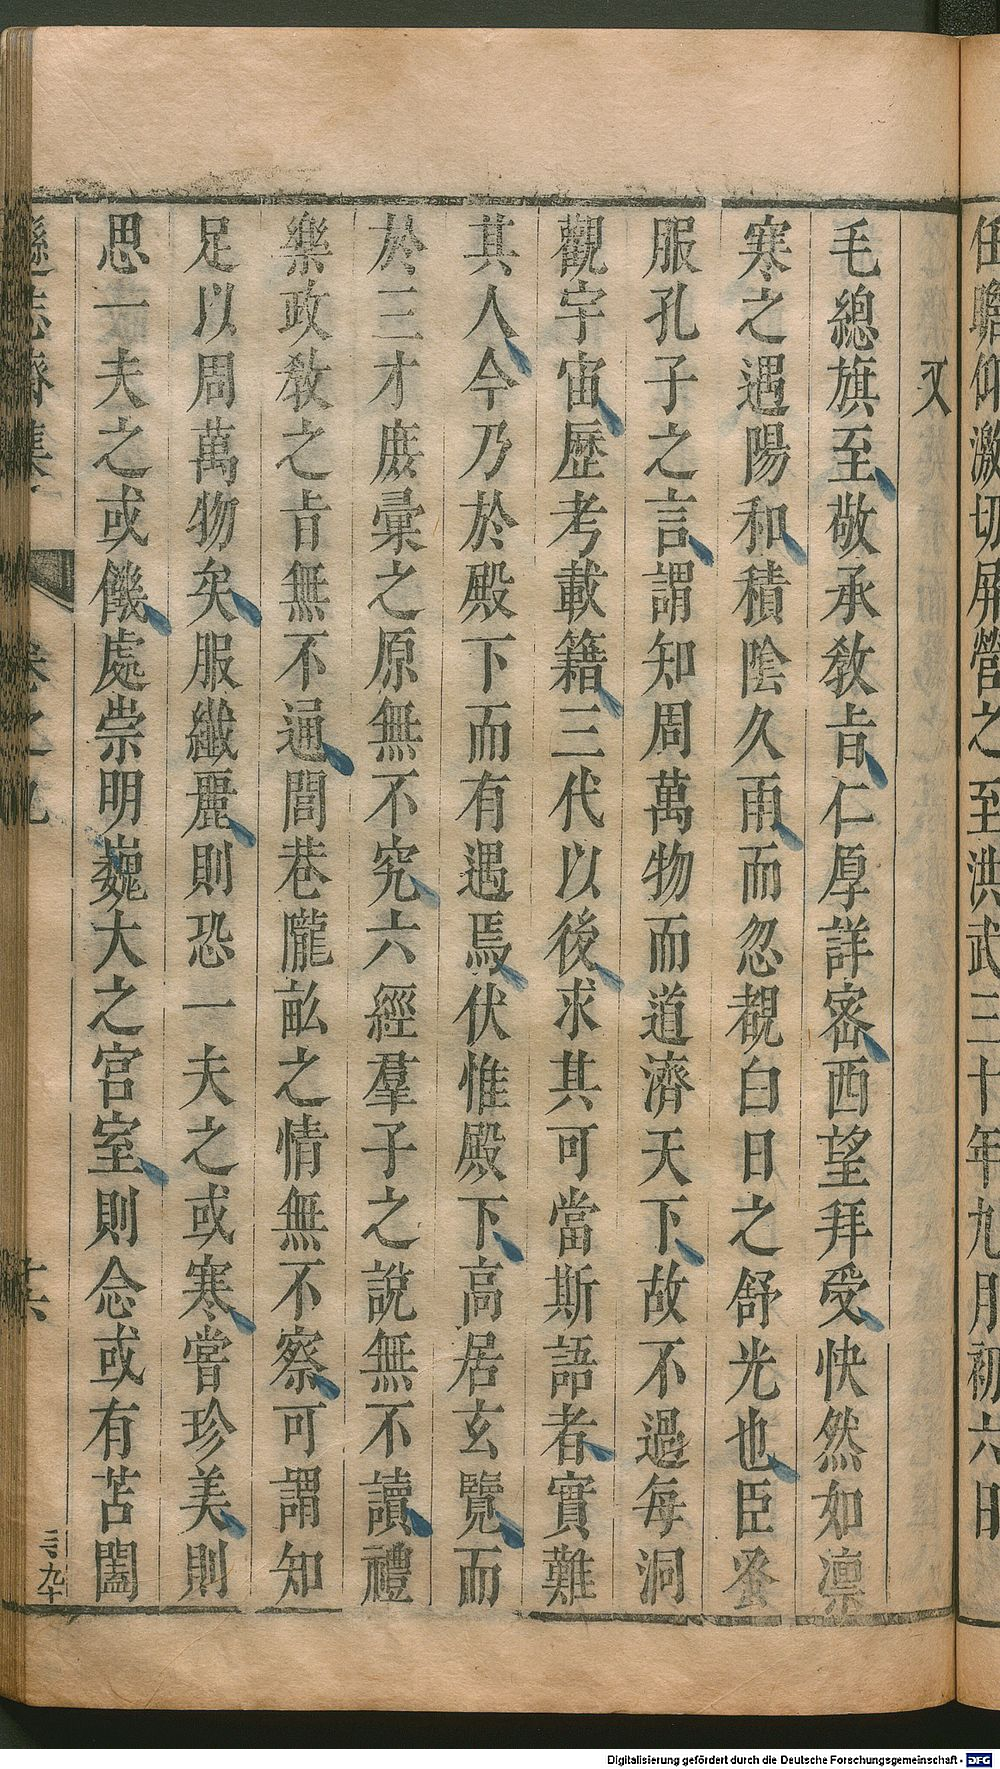 任瞻仰激切屏營之至洪武三十年九月初六日
又
毛總旗至敬承教㫖仁厚詳密西望拜受快然如凛
寒之遇陽和積陰久雨而忽覩白日之舒光也臣蚤
服孔子之言謂知周萬物而道濟天下故不過每洞
觀宇宙歷考載籍三代以後求其可當斯語者實難
其人今乃於殿下而有遇焉伏惟殿下高居玄覽而
於三才庶彚之原無不究六經羣子之說無不讀禮
樂政教之㫖無不通閭巷隴畝之情無不察可謂知
足以周萬物矣服纖麗則恐一夫之或寒嘗珍美則
思一夫之或饑處崇明巍大之宮室則念或有苫闔
遜志齋集
卷之九
十六
三九十
Digitalisierung gefördert durch die Deutsche Forschungsgemeinschaft - DFG